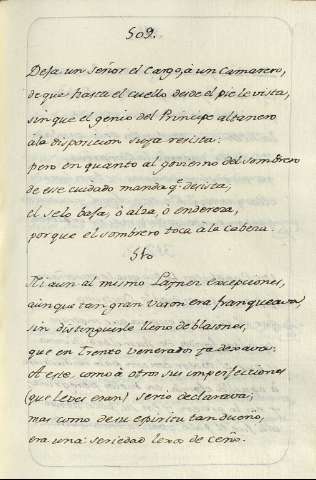 509.
Dexa un señor el cargo, à un Camarero,
de que hasta el cuello desde el pie le vista,
sin que el genio del Principe altanero
à la disposicion suya resista:
pero en quanto al govierno del sombrero
de ese cuidado manda q.e desista;
el se lo baxa, ò alza, ò endereza,
porque el sombrero toca à la cabeza.
510
Ni aun al mismo Laÿnez excepciones,
aùnque tan gran Varon era franqueava,
sin distinguirlo lleno de blasones,
que en Trento venerados ya dexava:
A este, como à otros sus imperfecciones
(que leves eran) serio declarava;
mas como de su espiritu tan dueño,
era una seriedad lexos de ceño.